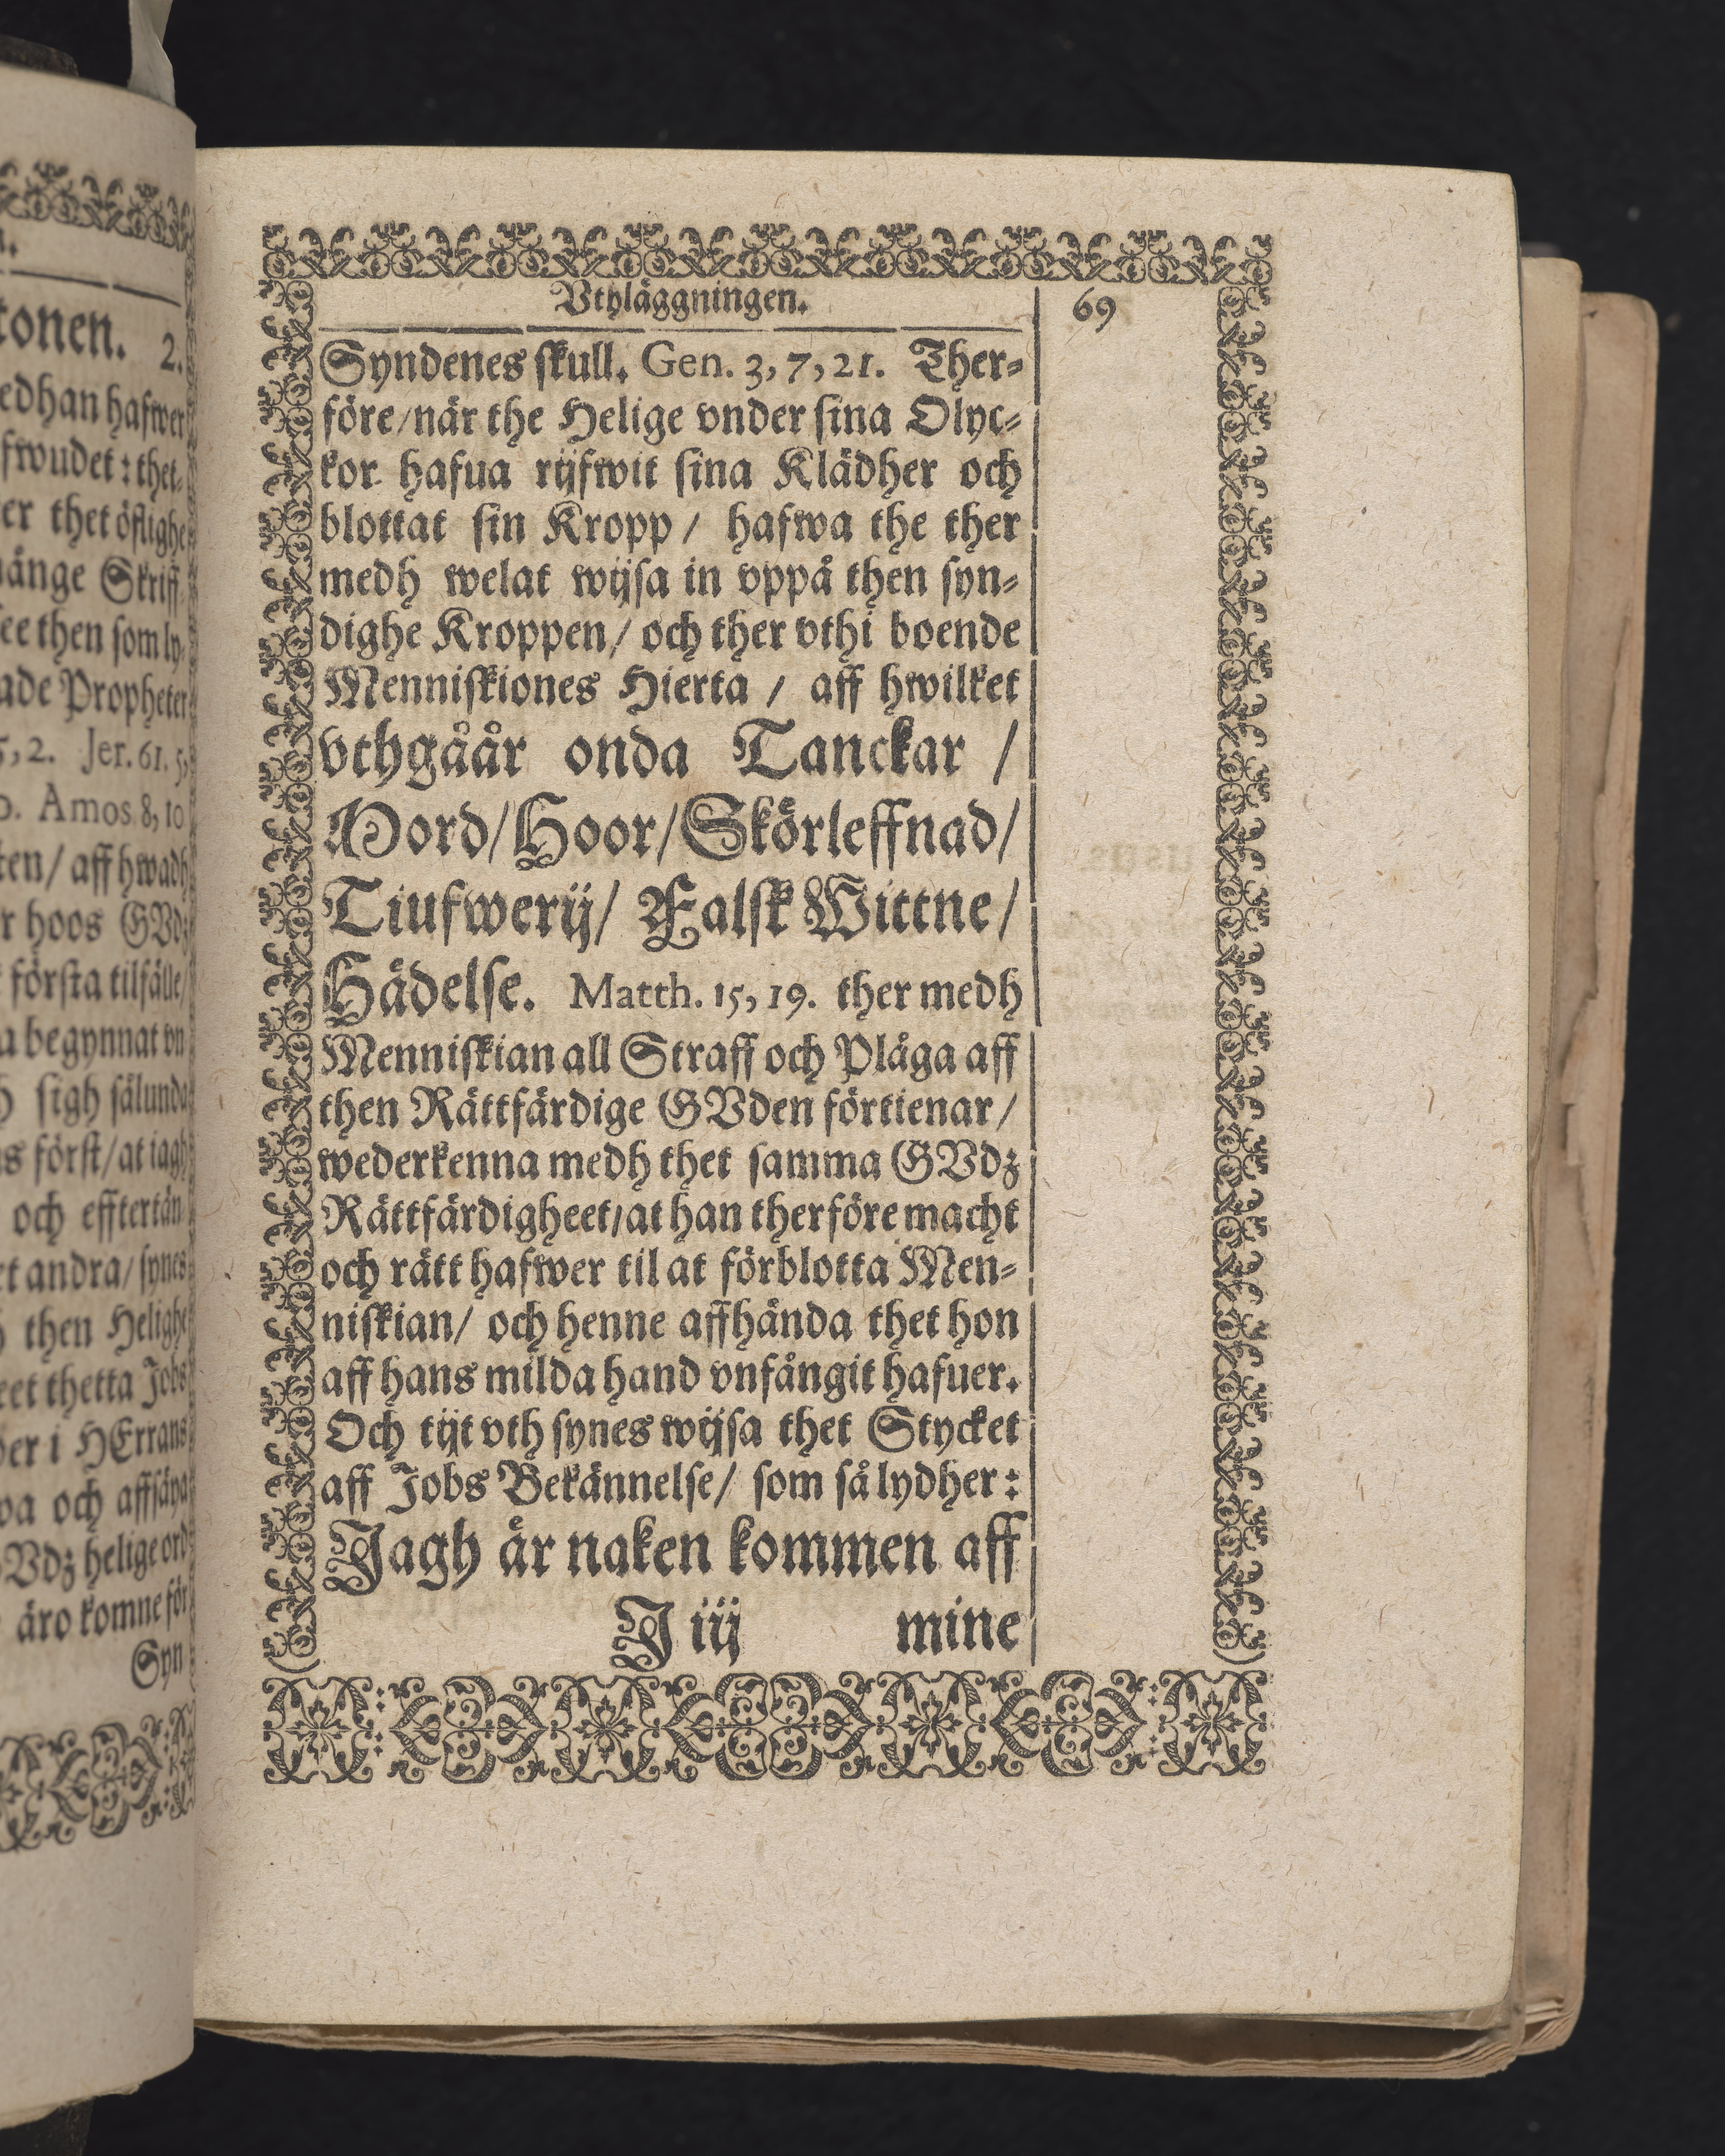 Vthläggningen. 69
Syndenes skull. Gen. 3, 7, 21. Ther-
före/när the Helige vnder sina Olyc-
kor hafua rijfwit sina Klädher och
blottat sin Kropp / hafwa the ther
medh welat wijsa in vppå then syn-
dighe Kroppen/ och ther vthi boende
Menniskiones Hierta / aff hwilket
vthgåår onda Tanckar /
Mord/Hoor/Skörleffnad/
Tiufwerij/ Falsk Wittne/
Hädelse. Matth. 15, 19. ther medh
Menniskian all Straff och Plåga aff
then Rättfärdige GVden förtienar/
wederkenna medh thet samma GVdz
Rättfärdigheet/at han therföre macht
och rätt hafwer til at förblotta Men-
niskian/ och henne affhända thet hon
aff hans milda hand vnfångit hafuer.
Och tijt vth synes wijsa thet Stycket
aff Jobs Bekännelse/ som så lydher:
Jagh är naken kommen aff
J iij mine
tonen. 2.
edhan hafwer
fwudet: thet-
er thet öflighe
änge Skriff
ee then som ly-
ade Propheter
5, 2. Jer. 61. 5,
Amos 8, 10
ten/ aff hwadh
r hoos GVdz
första tilfälle/
a begynnat vn
sigh sålunda
s först/at iagh
och efftertän
et andra/ synes
then Helighe
eet thetta Jobs
er i HErrans
wa och affsäya
Vdz helige ord
äro komne för
Syn